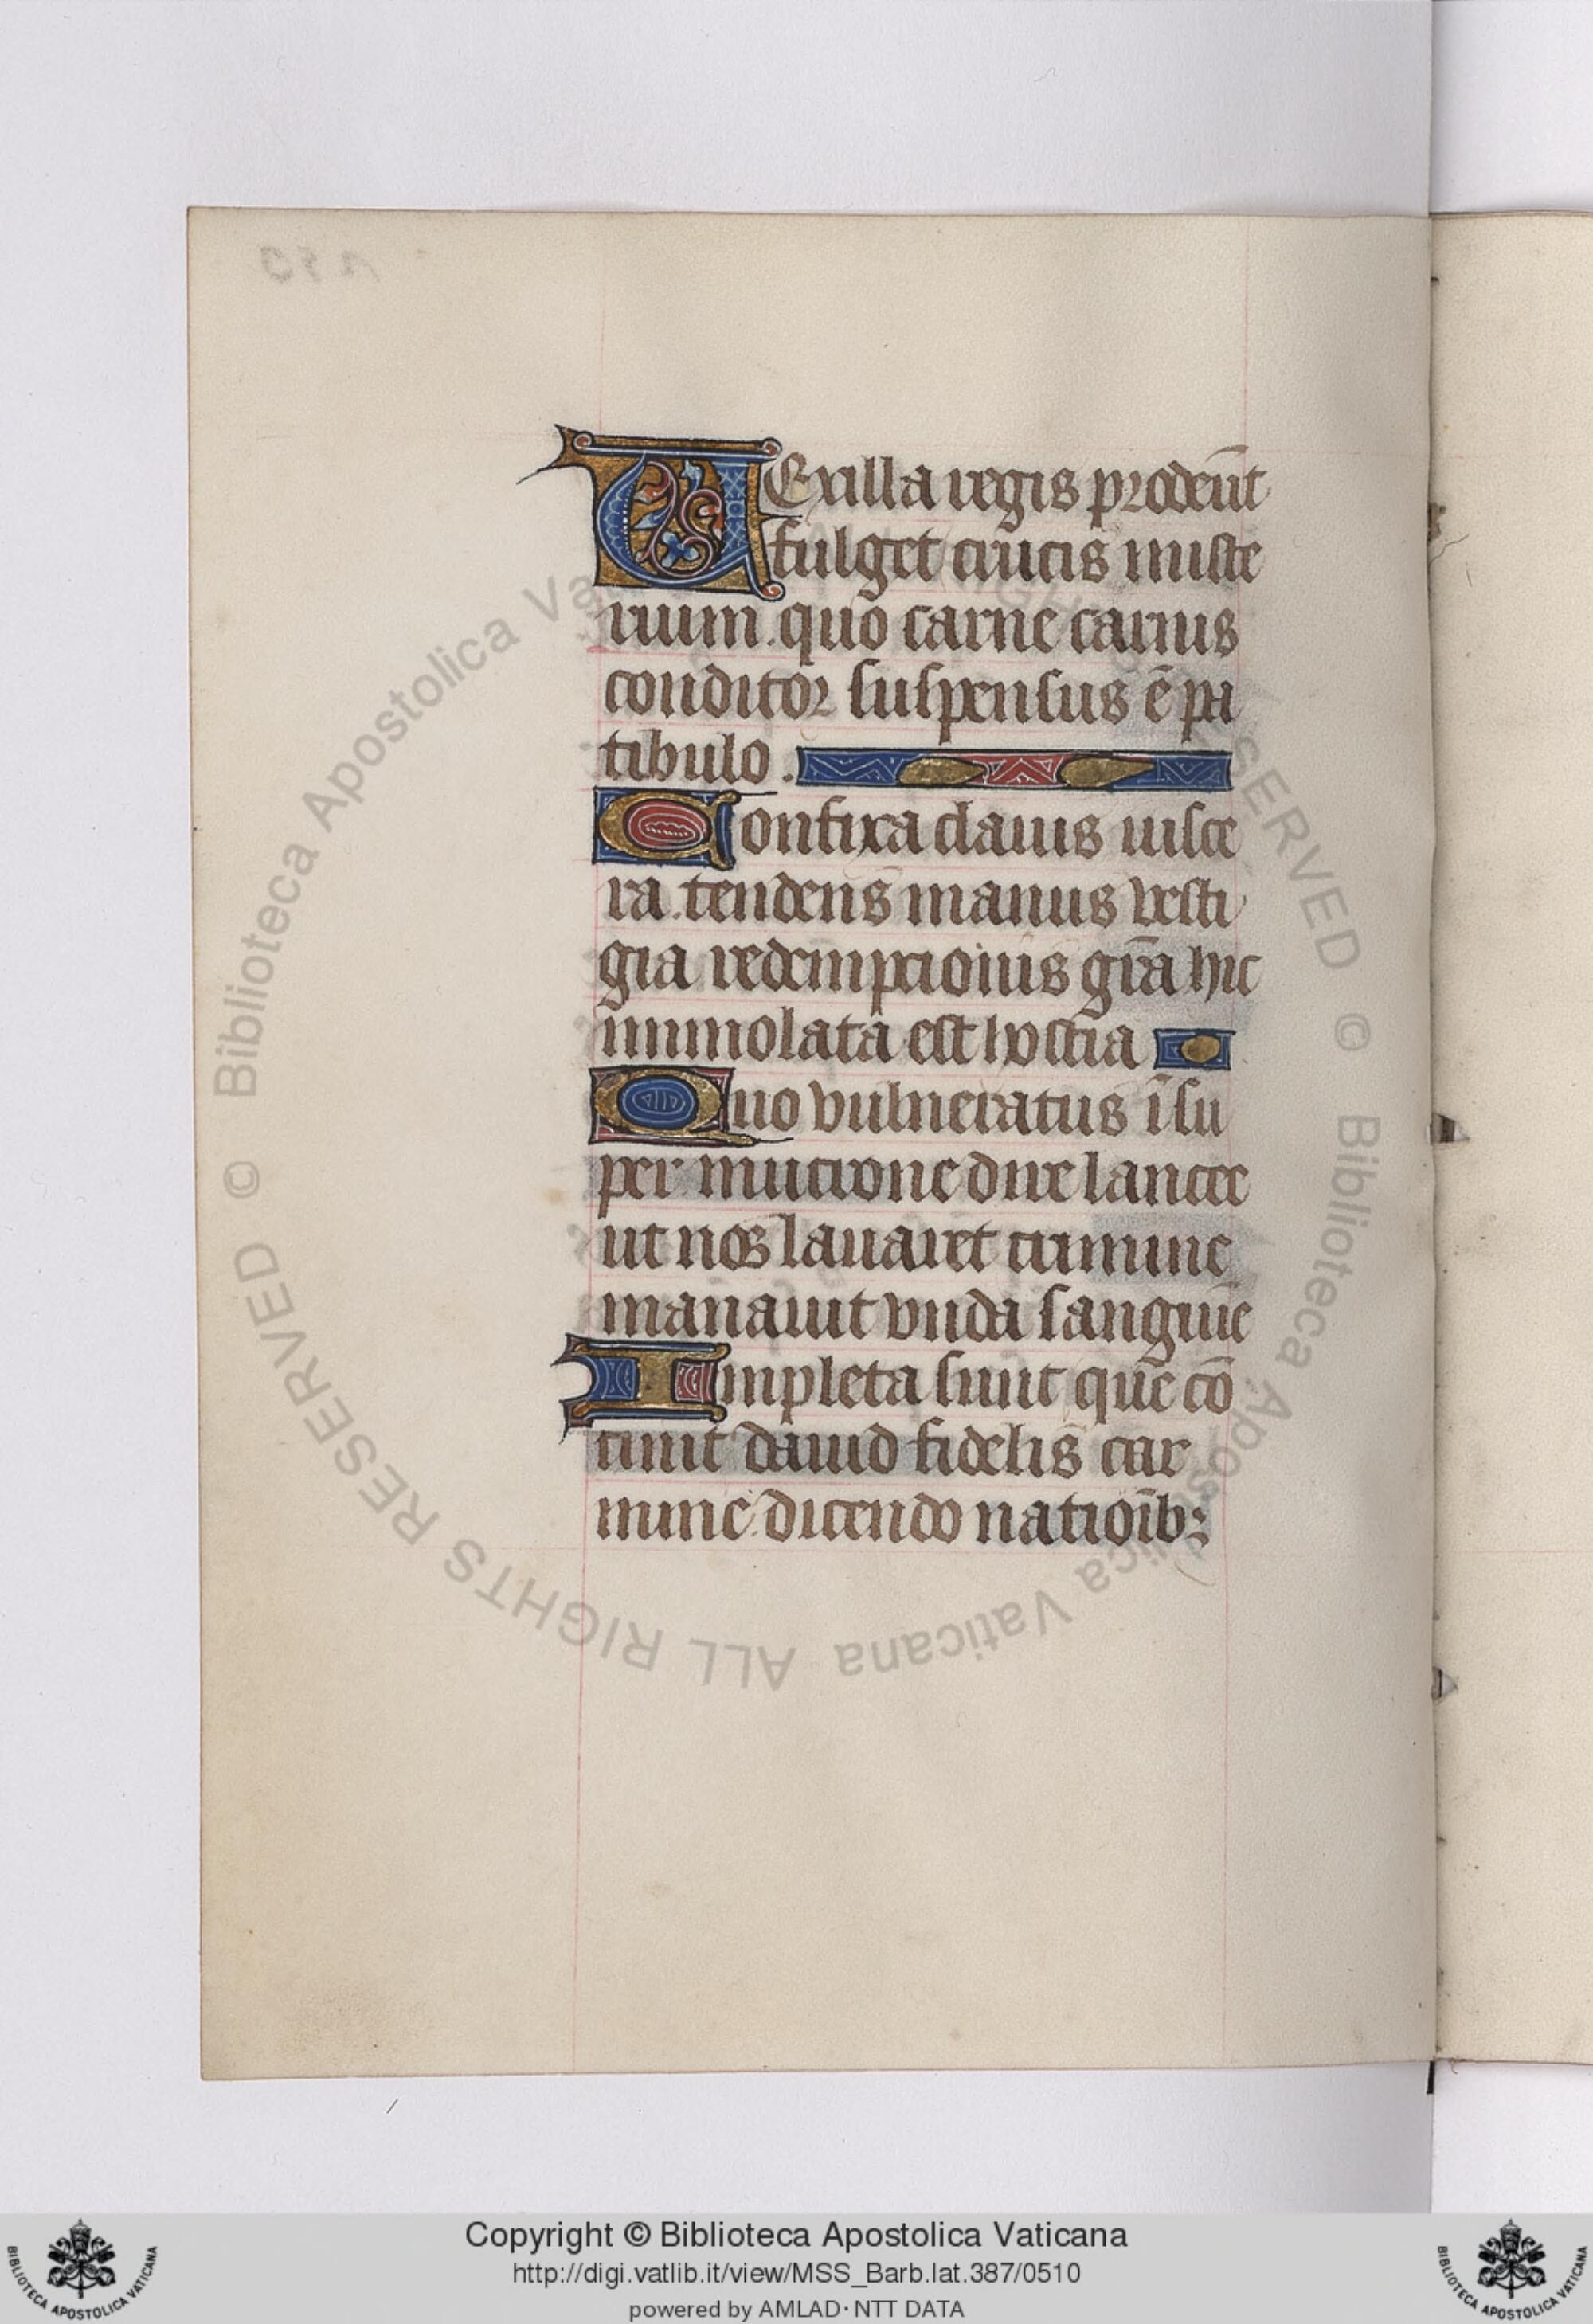 VExilla regis prodeūt
fulget crucis miste
rium. quo carne carnis
conditor suspensus ē pa
tibulo.
Confixa clauis uisce
ra. tendens manus vesti
gia redempcionis grā hic
immolata est hostia
Quo vulneratus īsu
per mucrone dire lancee
ut nos lauaret crimine
manauit vnda sanguīe
Impleta sunt que cō
cinit dauid fidelis car
mine. dicendo natioīb;
© Biblioteca Apostolica Vaticana ALL RIGHTS RESERVED
© Biblioteca Apostolica Vaticana ALL RIGHTS RESERVED
Copyright © Biblioteca Apostolica Vaticana
http://digi.vatlib.it/view/MSS_Barb.lat.387/0510
powered by AMLAD·NTT DATA
BIBLIOTECA APOSTOLICA VATICANA
BIBLIOTECA APOSTOLICA VATICANA